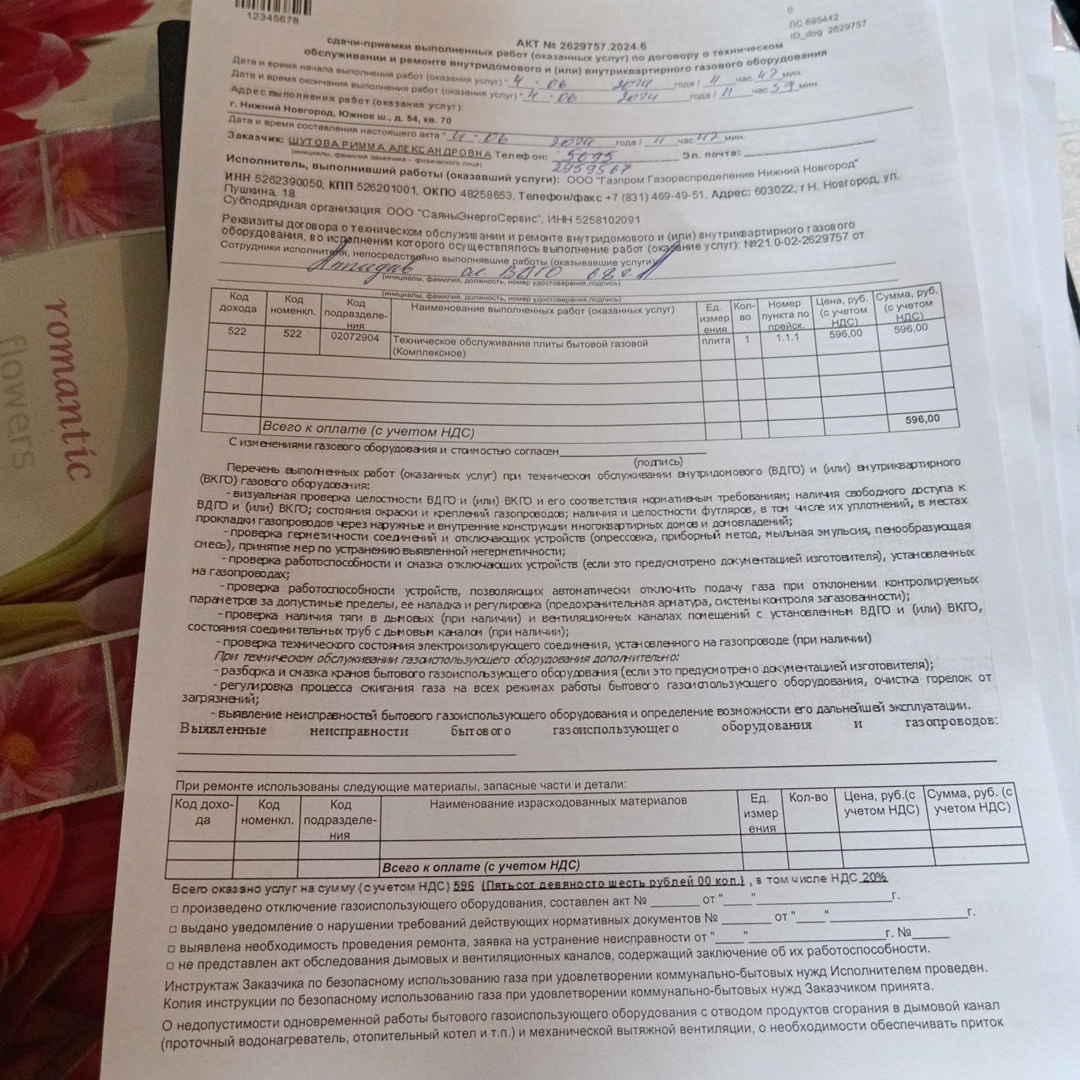 12345678
0
ЛС 695442
ID_dog 2629757
АКТ № 2629757.2024.6
сдачи-приемки выполненных работ (оказанных услуг) по договору о техническом
обслуживании и ремонте внутридомового и (или) внутриквартирного газового оборудования
Дата и время начала выполнения работ (оказания услуг) " 4 " 06 2024 года / 11 час 47 мин.
Дата и время окончания выполнения работ (оказания услуг) " 4 " 06 2024 года / 11 час 59 мин.
Адрес выполнения работ (оказания услуг):
г. Нижний Новгород, Южное ш., д. 54, кв. 70
Дата и время составления настоящего акта " 4 " 06 2024 года / 11 час 47 мин.
Заказчик: ШУТОВА РИММА АЛЕКСАНДРОВНА Телефон: 5695 Эл. почта:
(инициалы, фамилия заказчика - физического лица) 2959567
Исполнитель, выполнивший работы (оказавший услуги): ООО "Газпром Газораспределение Нижний Новгород"
ИНН 5262390050, КПП 526201001, ОКПО 48258653, Телефон/факс +7 (831) 469-49-51, Адрес: 603022, г Н. Новгород, ул.
Пушкина, 18
Субподрядная организация: ООО "СаяныЭнергоСервис", ИНН 5258102091
Реквизиты договора о техническом обслуживании и ремонте внутридомового и (или) внутриквартирного газового
оборудования, во исполнении которого осуществлялось выполнение работ (оказание услуг): №21.0-02-2629757 от
Сотрудники исполнителя, непосредственно выполнявшие работы (оказывавшие услуги)
ВДГО
(инициалы, фамилия, должность, номер удостоверения,подпись)
(инициалы, фамилия, должность, номер удостоверения,подпись)
Код дохода Код номенкл. Код подразделе-ния Наименование выполненных работ (оказанных услуг) Ед. измерения Кол-во Номер пункта по прейск. Цена, руб. (с учетом НДС) Сумма, руб. (с учетом НДС)
522 522 02072904 Техническое обслуживание плиты бытовой газовой плита 1 1.1.1 596,00 596,00
(Комплексное)
Всего к оплате (с учетом НДС) 596,00
С изменениями газового оборудования и стоимостью согласен
(подпись)
Перечень выполненных работ (оказанных услуг) при техническом обслуживании внутридомового (ВДГО) и (или) внутриквартирного
(ВКГО) газового оборудования:
- визуальная проверка целостности ВДГО и (или) ВКГО и его соответствия нормативным требованиям; наличия свободного доступа к
ВДГО и (или) ВКГО; состояния окраски и креплений газопроводов; наличия и целостности футляров, в том числе их уплотнений, в местах
прокладки газопроводов через наружные и внутренние конструкции многоквартирных домов и домовладений;
- проверка герметичности соединений и отключающих устройств (опрессовка, приборный метод, мыльная эмульсия, пенообразующая
смесь), принятие мер по устранению выявленной негерметичности;
- проверка работоспособности и смазка отключающих устройств (если это предусмотрено документацией изготовителя), установленных
на газопроводах;
- проверка работоспособности устройств, позволяющих автоматически отключить подачу газа при отклонении контролируемых
параметров за допустимые пределы, ее наладка и регулировка (предохранительная арматура, системы контроля загазованности);
- проверка наличия тяги в дымовых (при наличии) и вентиляционных каналах помещений с установленным ВДГО и (или) ВКГО,
состояния соединительных труб с дымовым каналом (при наличии);
- проверка технического состояния электроизолирующего соединения, установленного на газопроводе (при наличии)
При техническом обслуживании газоиспользующего оборудования дополнительно:
- разборка и смазка кранов бытового газоиспользующего оборудования (если это предусмотрено документацией изготовителя);
- регулировка процесса сжигания газа на всех режимах работы бытового газоиспользующего оборудования, очистка горелок от
загрязнений;
- выявление неисправностей бытового газоиспользующего оборудования и определение возможности его дальнейшей эксплуатации.
Выявленные неисправности бытового газоиспользующего оборудования и газопроводов:
При ремонте использованы следующие материалы, запасные части и детали:
Код дохо-да Код номенкл. Код подразделе-ния Наименование израсходованных материалов Ед. измерения Кол-во Цена, руб.(с учетом НДС) Сумма, руб. (с учетом НДС)
Всего к оплате (с учетом НДС)
Всего оказано услуг на сумму (с учетом НДС) 596 (Пятьсот девяносто шесть рублей 00 коп.) , в том числе НДС 20%
□ произведено отключение газоиспользующего оборудования, составлен акт № от " " г.
□ выдано уведомление о нарушении требований действующих нормативных документов № от " " г.
□ выявлена необходимость проведения ремонта, заявка на устранение неисправности от " " г. №
□ не представлен акт обследования дымовых и вентиляционных каналов, содержащий заключение об их работоспособности.
Инструктаж Заказчика по безопасному использованию газа при удовлетворении коммунально-бытовых нужд Исполнителем проведен.
Копия инструкции по безопасному использованию газа при удовлетворении коммунально-бытовых нужд Заказчиком принята.
О недопустимости одновременной работы бытового газоиспользующего оборудования с отводом продуктов сгорания в дымовой канал
(проточный водонагреватель, отопительный котел и т.п.) и механической вытяжной вентиляции, о необходимости обеспечивать приток
romantic
flowers